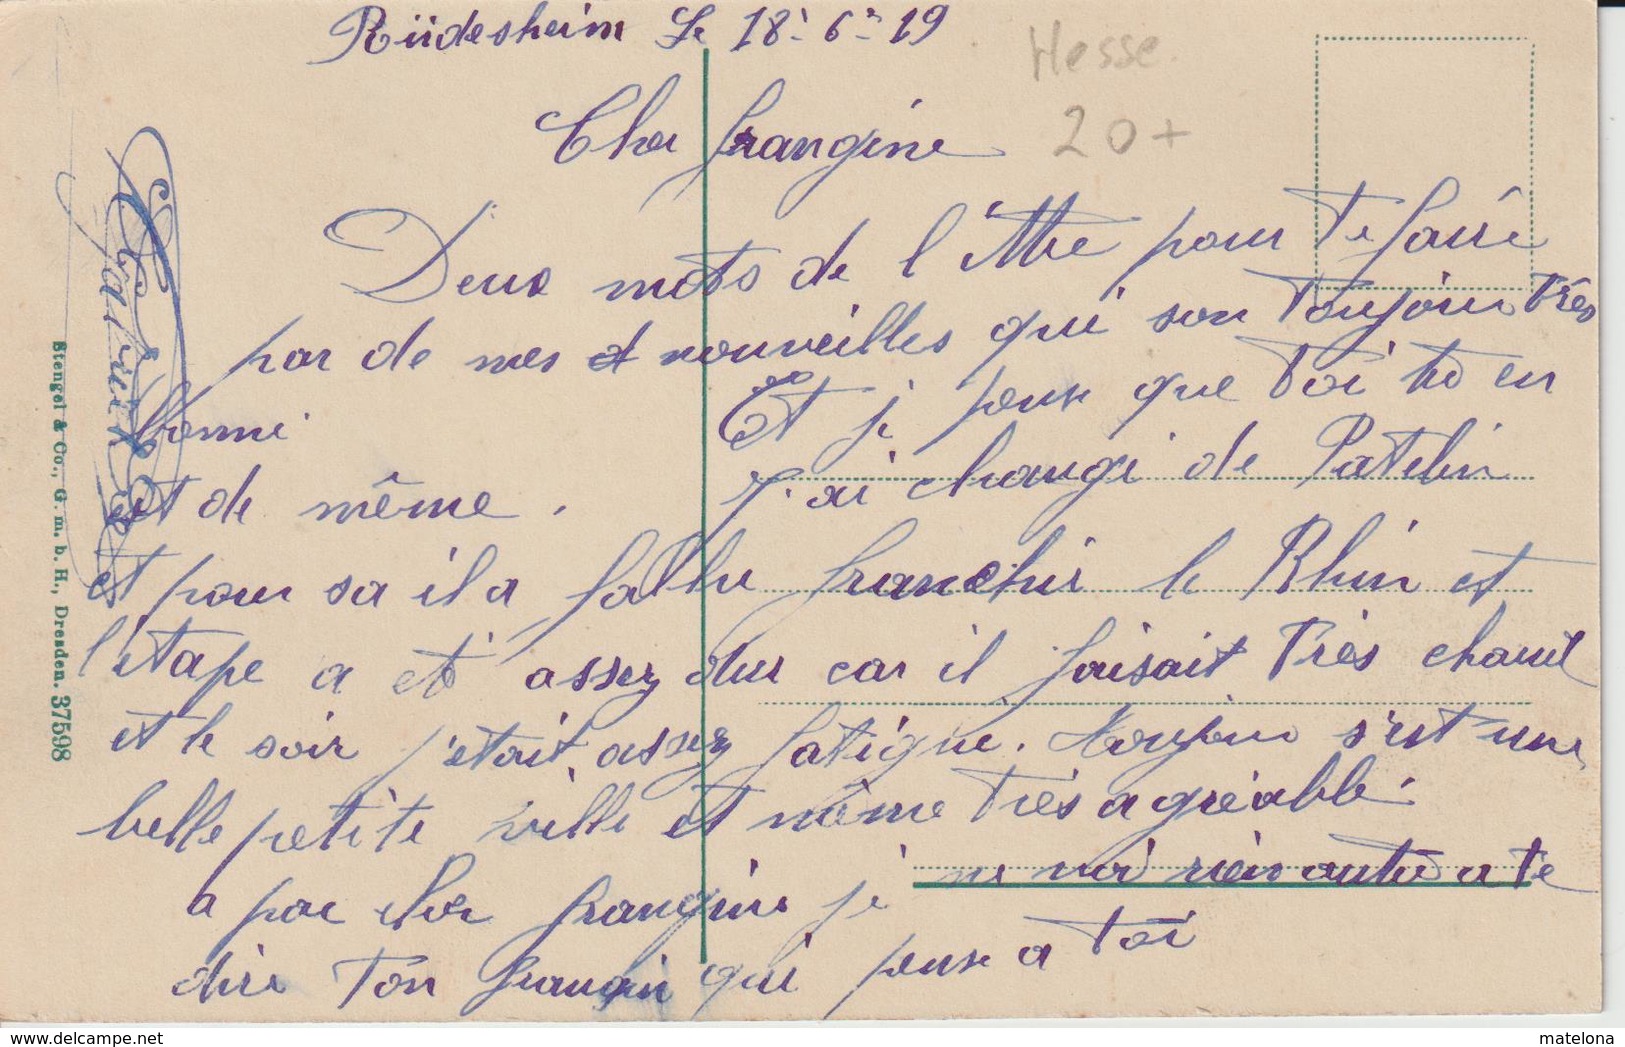 Rüdesheim Le 18-6-19
Hesse.
20+
Cher frangine
Deux mots de l'ettre pour te faire
par de mes nouveilles qui son toujour très
bonne Et je pense que toi tu en
et de même. J'ai changé de Patelin
et pour sa il a fallu franchir le Rhin et
l'étape a et assez dur car il faisait très chaud
et le soir j'etait assez fatigue. s'est une
belle petite ville et même très agréable.
a par cher frangine je ne voi rien autre a te
dire ton frangin qui pense a toi
Stengel & Co., G. m. b. H., Dresden. 37598
matelona